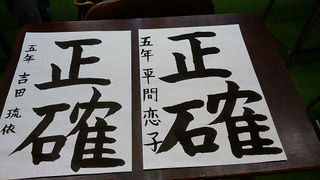 正確
五年 平間恋子
正確
五年 吉田琉依